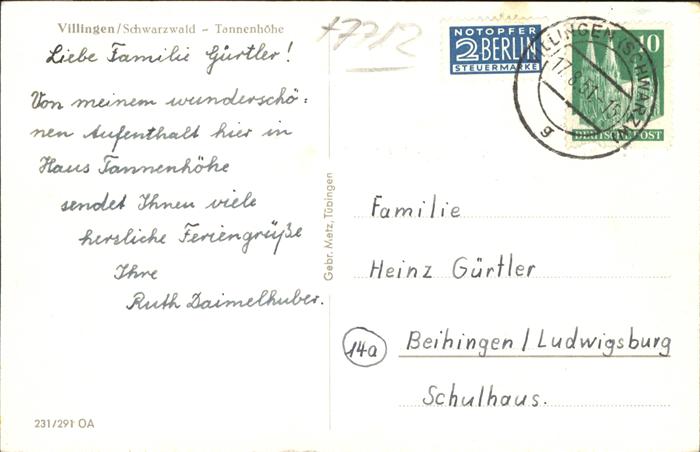 Villingen/Schwarzwald - Tannenhöhe
Liebe Familie Gürtler!
Von meinem wunderschö-
nen Aufenthalt hier in
Haus Tannenhöhe
sendet Ihnen viele
herzliche Feriengrüße
Ihre
Ruth Daimelhuber.
231/291 OA
Gebr. Metz, Tübingen
+7712
NOTOPFER
2 BERLIN
STEUERMARKE
10
DEUTSCHE POST
VILLINGEN (SCHWARZW)
17.8.51
g
Familie
Heinz Gürtler
14a
Beihingen/Ludwigsburg
Schulhaus.